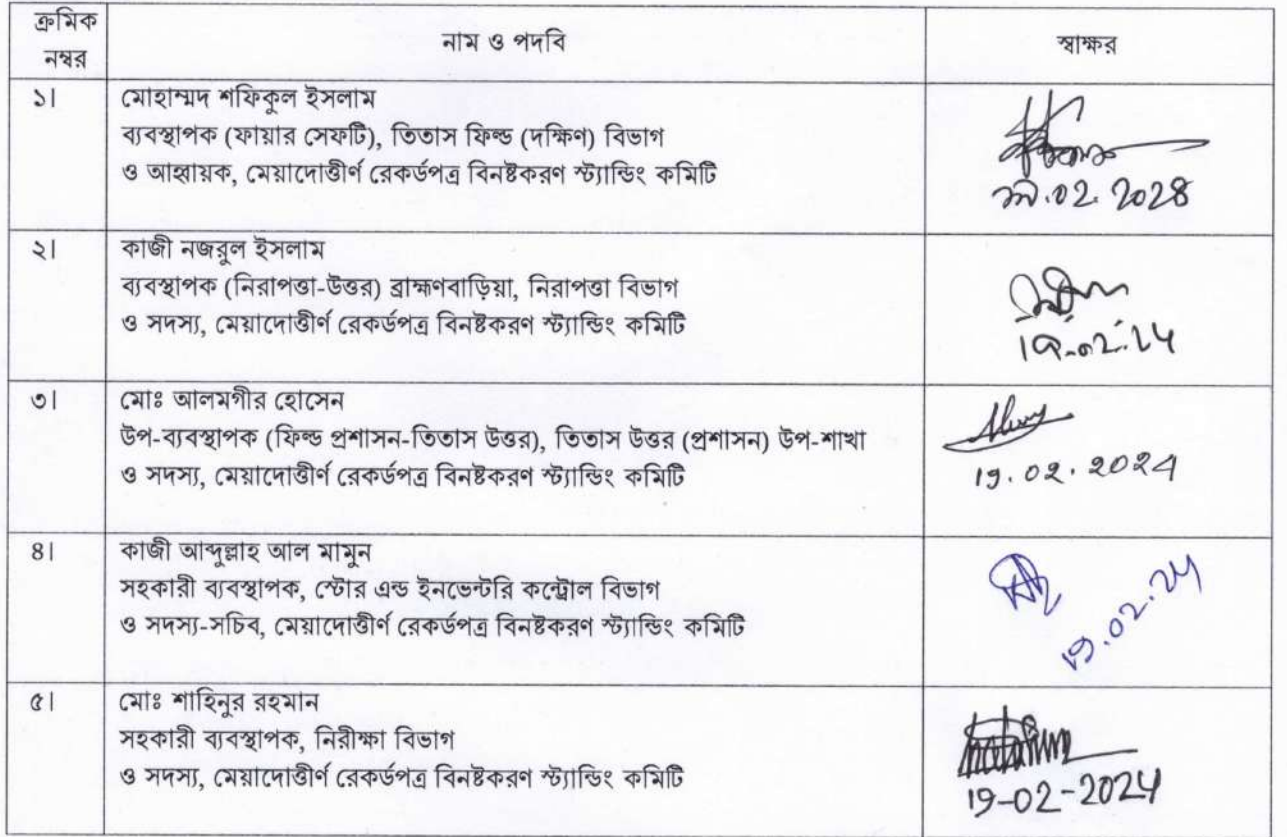 ক্রমিক
নম্বর
নাম ও পদবি
স্বাক্ষর
১।
মোহাম্মদ শফিকুল ইসলাম
ব্যবস্থাপক (ফায়ার সেফটি), তিতাস ফিল্ড (দক্ষিণ) বিভাগ
ও আহ্বায়ক, মেয়াদোত্তীর্ণ রেকর্ডপত্র বিনষ্টকরণ স্ট্যান্ডিং কমিটি
১৯.০২.২০২৪
২।
কাজী নজরুল ইসলাম
ব্যবস্থাপক (নিরাপত্তা-উত্তর) ব্রাহ্মণবাড়িয়া, নিরাপত্তা বিভাগ
ও সদস্য, মেয়াদোত্তীর্ণ রেকর্ডপত্র বিনষ্টকরণ স্ট্যান্ডিং কমিটি
19.02.24
৩।
মোঃ আলমগীর হোসেন
উপ-ব্যবস্থাপক (ফিল্ড প্রশাসন-তিতাস উত্তর), তিতাস উত্তর (প্রশাসন) উপ-শাখা
ও সদস্য, মেয়াদোত্তীর্ণ রেকর্ডপত্র বিনষ্টকরণ স্ট্যান্ডিং কমিটি
19.02.2024
৪।
কাজী আব্দুল্লাহ আল মামুন
সহকারী ব্যবস্থাপক, স্টোর এন্ড ইনভেন্টরি কন্ট্রোল বিভাগ
ও সদস্য-সচিব, মেয়াদোত্তীর্ণ রেকর্ডপত্র বিনষ্টকরণ স্ট্যান্ডিং কমিটি
19.02.24
৫।
মোঃ শাহিনুর রহমান
সহকারী ব্যবস্থাপক, নিরীক্ষা বিভাগ
ও সদস্য, মেয়াদোত্তীর্ণ রেকর্ডপত্র বিনষ্টকরণ স্ট্যান্ডিং কমিটি
19-02-2024